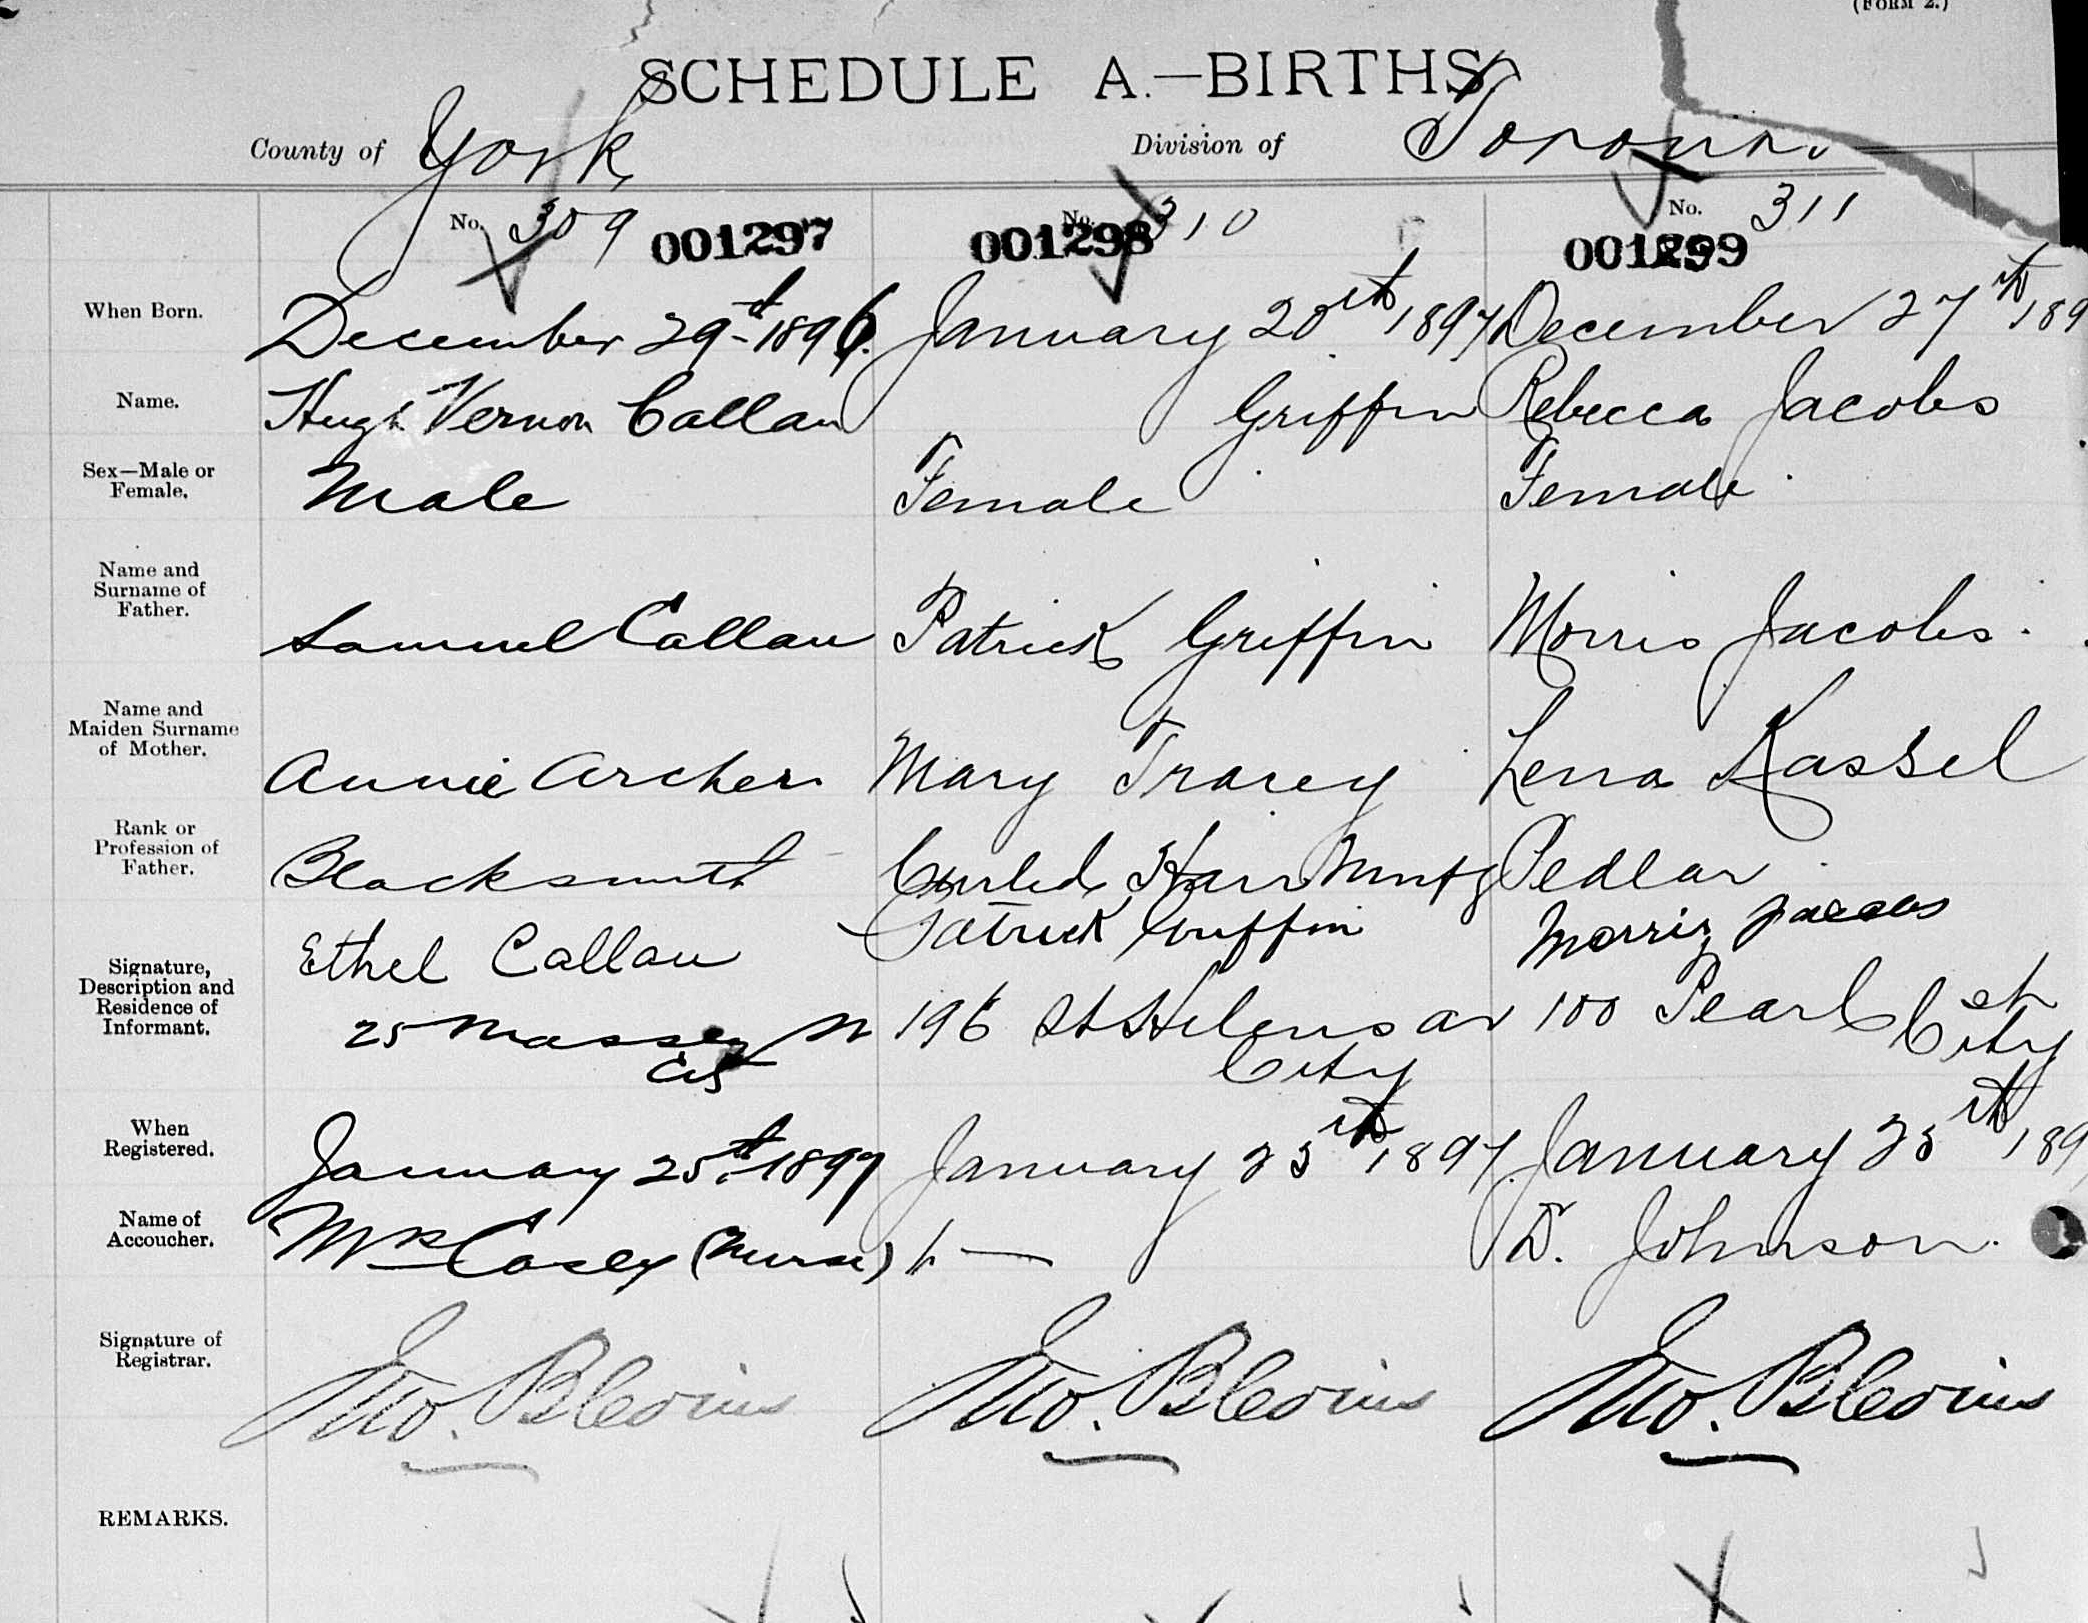 (FORM 2.)
SCHEDULE A.—BIRTHS
County of York Division of Toronto.
No. 309 001297 No. 310 001298 No. 311 001299
When Born. December 29th 1896. January 20th 1897 December 27th 189
Name. Hugh Vernon Callan Griffin Rebecca Jacobs
Sex—Male or Female. Male Female Female
Name and Surname of Father. Samuel Callan Patrick Griffin Morris Jacobs.
Name and Maiden Surname of Mother. Annie Archer Mary Tracey Lena Kassel
Rank or Profession of Father. Blacksmith Curled Hair Mnfg Pedlar
Signature, Description and Residence of Informant. Ethel Callan Patrick Griffin Morris Jacobs
25 Massey 196 St Helens av 100 Pearl st
City City
When Registered. January 25th 1897 January 25th 1897. January 25th 189
Name of Accoucher. Mrs Casey (Nurse) — D. Johnson.
Signature of Registrar. Jno. Blevins Jno. Blevins Jno. Blevins
REMARKS.